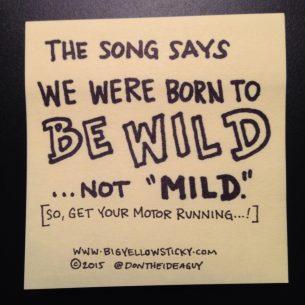 THE SONG SAYS
WE WERE BORN TO
BE WILD
...NOT "MILD."
[SO, GET YOUR MOTOR RUNNING...!]
WWW.BIGYELLOWSTICKY.COM
©2015 @DONTHEIDEAGUY